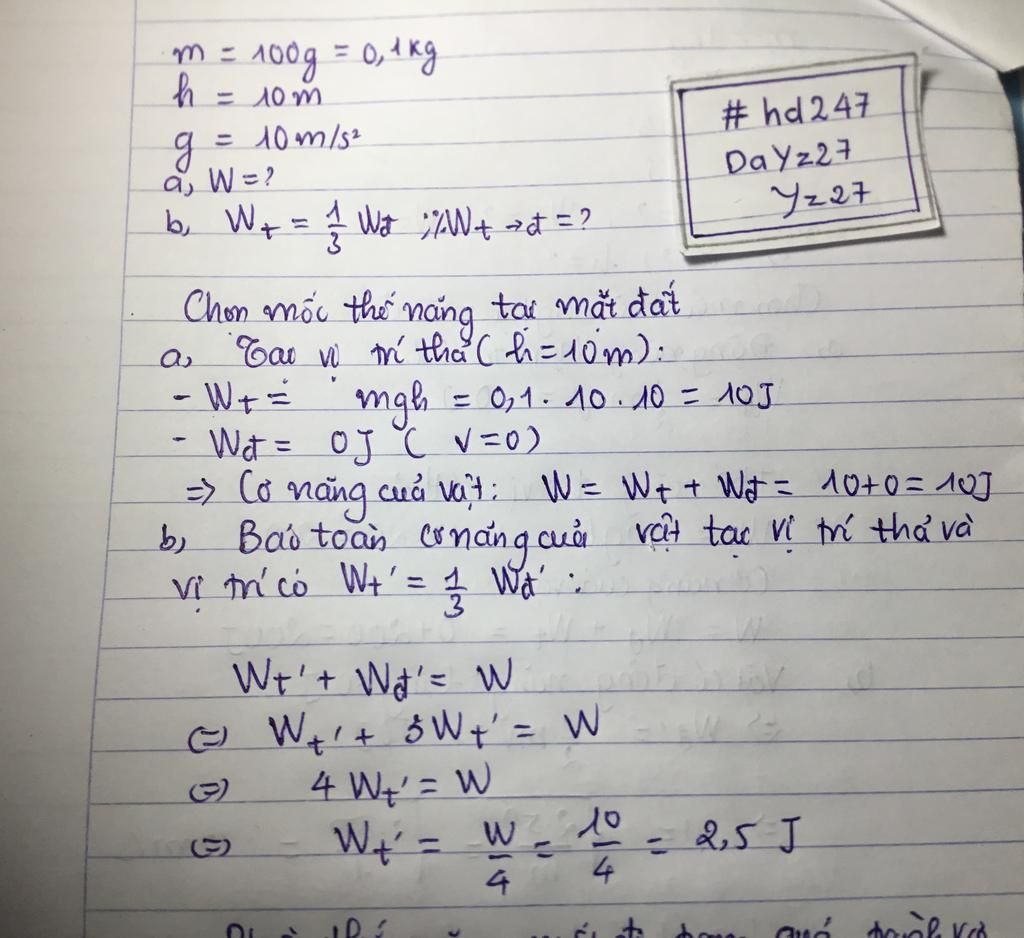 m = 100g = 0,1kg
h = 10m
g = 10m/s²
a, W = ?
b, Wt = 1/3 Wđ ; % Wt → đ = ?
# hd247
DaYz27
Yz27
Chọn mốc thế năng tại mặt đất
a, Tại vị trí thả ( h = 10m ) :
- Wt = mgh = 0,1 . 10 . 10 = 10J
- Wđ = 0J ( v = 0 )
=> Cơ năng của vật : W = Wt + Wđ = 10 + 0 = 10J
b, Bảo toàn cơ năng của vật tại vị trí thả và
vị trí có Wt' = 1/3 Wđ' :
Wt' + Wđ' = W
(=) Wt' + 3Wt' = W
(=) 4 Wt' = W
(=) Wt' = W/4 = 10/4 = 2,5 J